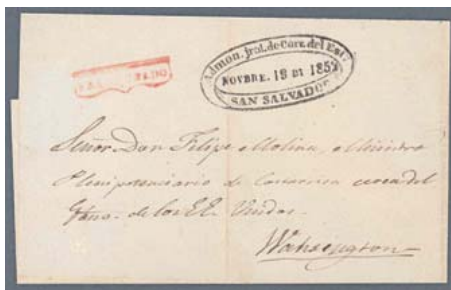 Admon. jral. de Corr. del Est.
NOVBRE. 18 DE 1852
SAN SALVADOR
Señor Don Felipe Molina, Ministro
Plenipotenciario de Costarrica cerca del
de los EE. Unidos.
Wahsington